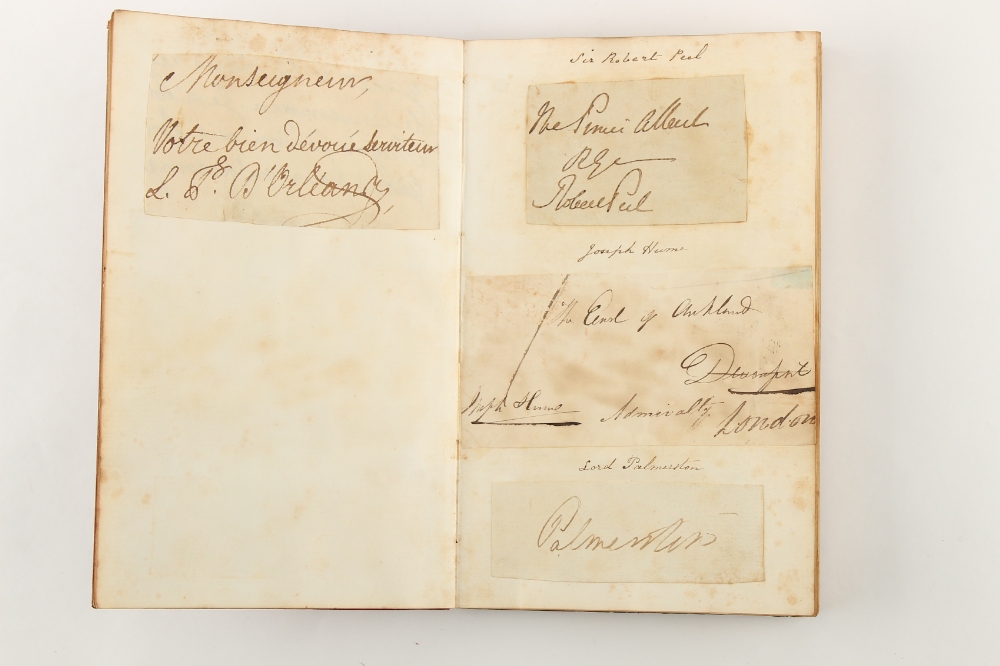 Monseigneur,
Votre bien dévoué Serviteur
L. Pe. D'Orléans,
Sir Robert Peel
The Prince Albert
Robert Peel
Joseph Hume
The Earl of Aukland
Devonport
Joseph Hume Admiralty London
Lord Palmerston
Palmerston